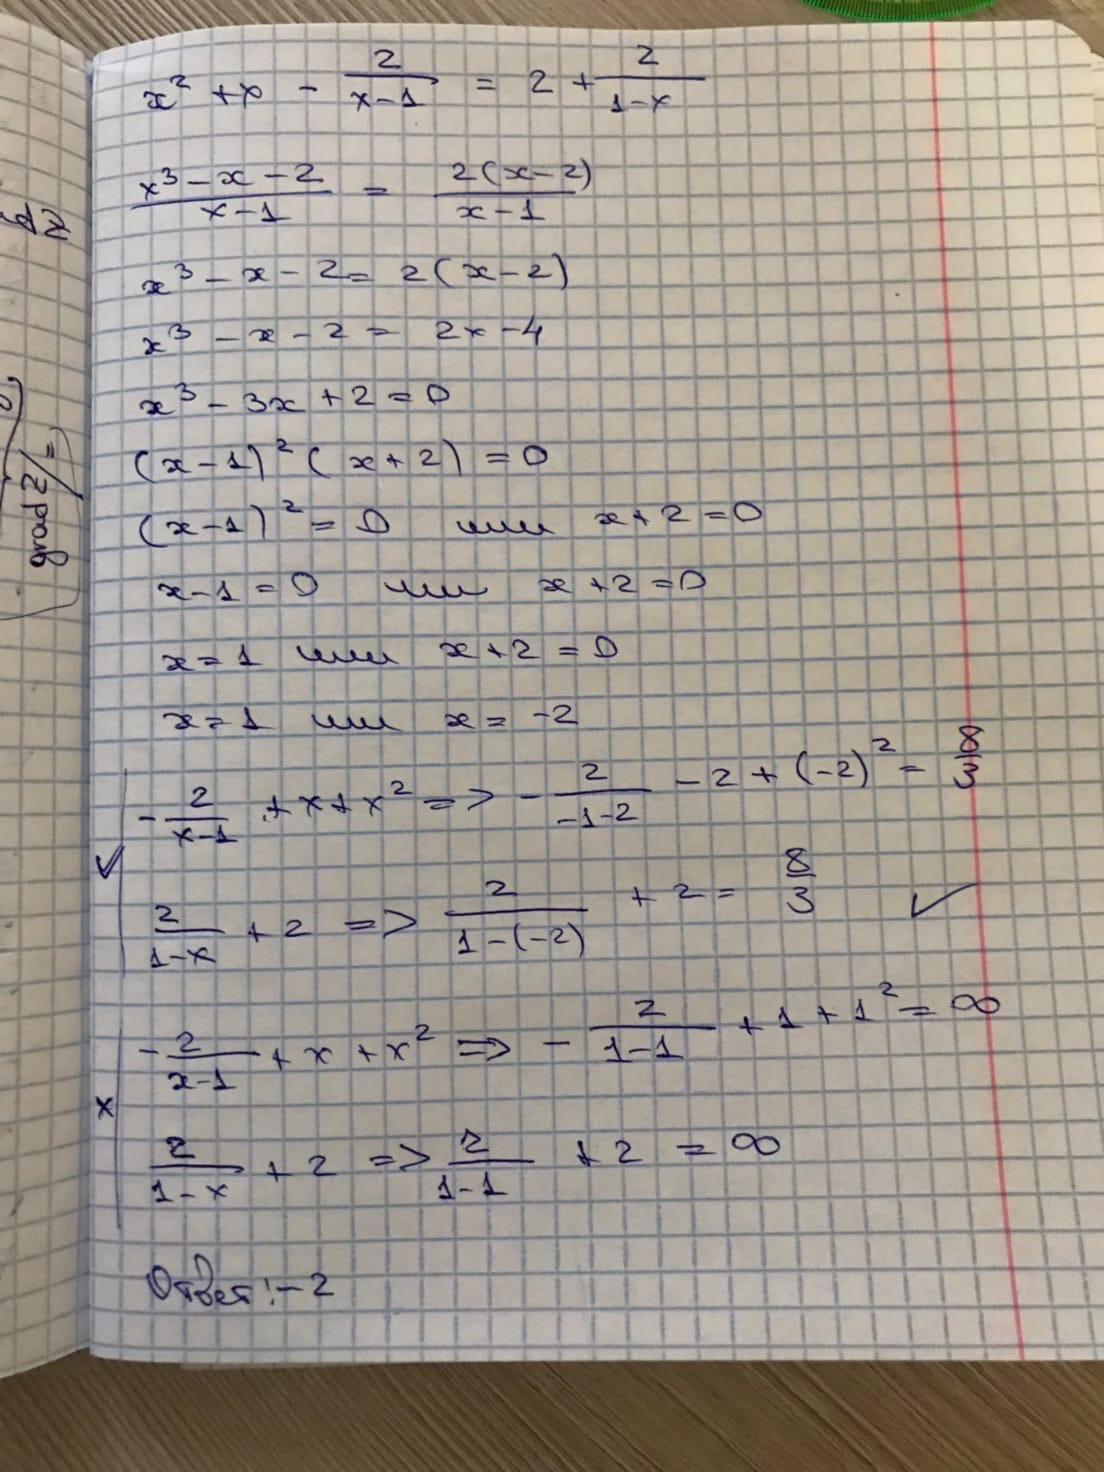 x² + x - 2/(x-1) = 2 + 2/(1-x)
(x³ - x - 2)/(x-1) = 2(x-2)/(x-1)
x³ - x - 2 = 2(x-2)
x³ - x - 2 = 2x - 4
x³ - 3x + 2 = 0
(x-1)² (x+2) = 0
(x-1)² = 0 или x+2 = 0
x-1 = 0 или x+2 = 0
x = 1 или x+2 = 0
x = 1 или x = -2
- 2/(x-1) + x + x² => - 2/(-1-2) - 2 + (-2)² = 8/3
✓ 2/(1-x) + 2 => 2/(1-(-2)) + 2 = 8/3 ✓
- 2/(x-1) + x + x² => - 2/(1-1) + 1 + 1² = ∞
x 2/(1-x) + 2 => 2/(1-1) + 2 = ∞
Ответ: -2
grad 2/=